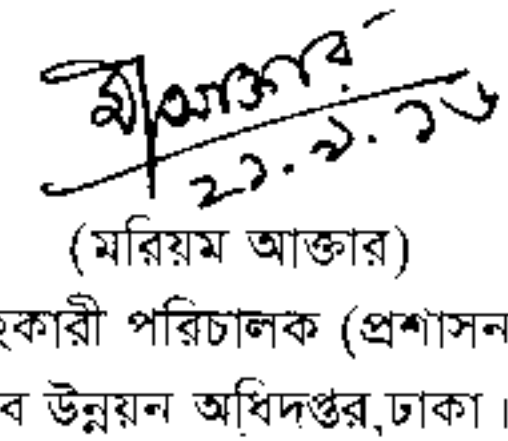 মআক্তার
২১.৯.১৬
(মরিয়ম আক্তার)
হকারী পরিচালক (প্রশাসন
ব উন্নয়ন অধিদপ্তর,ঢাকা।